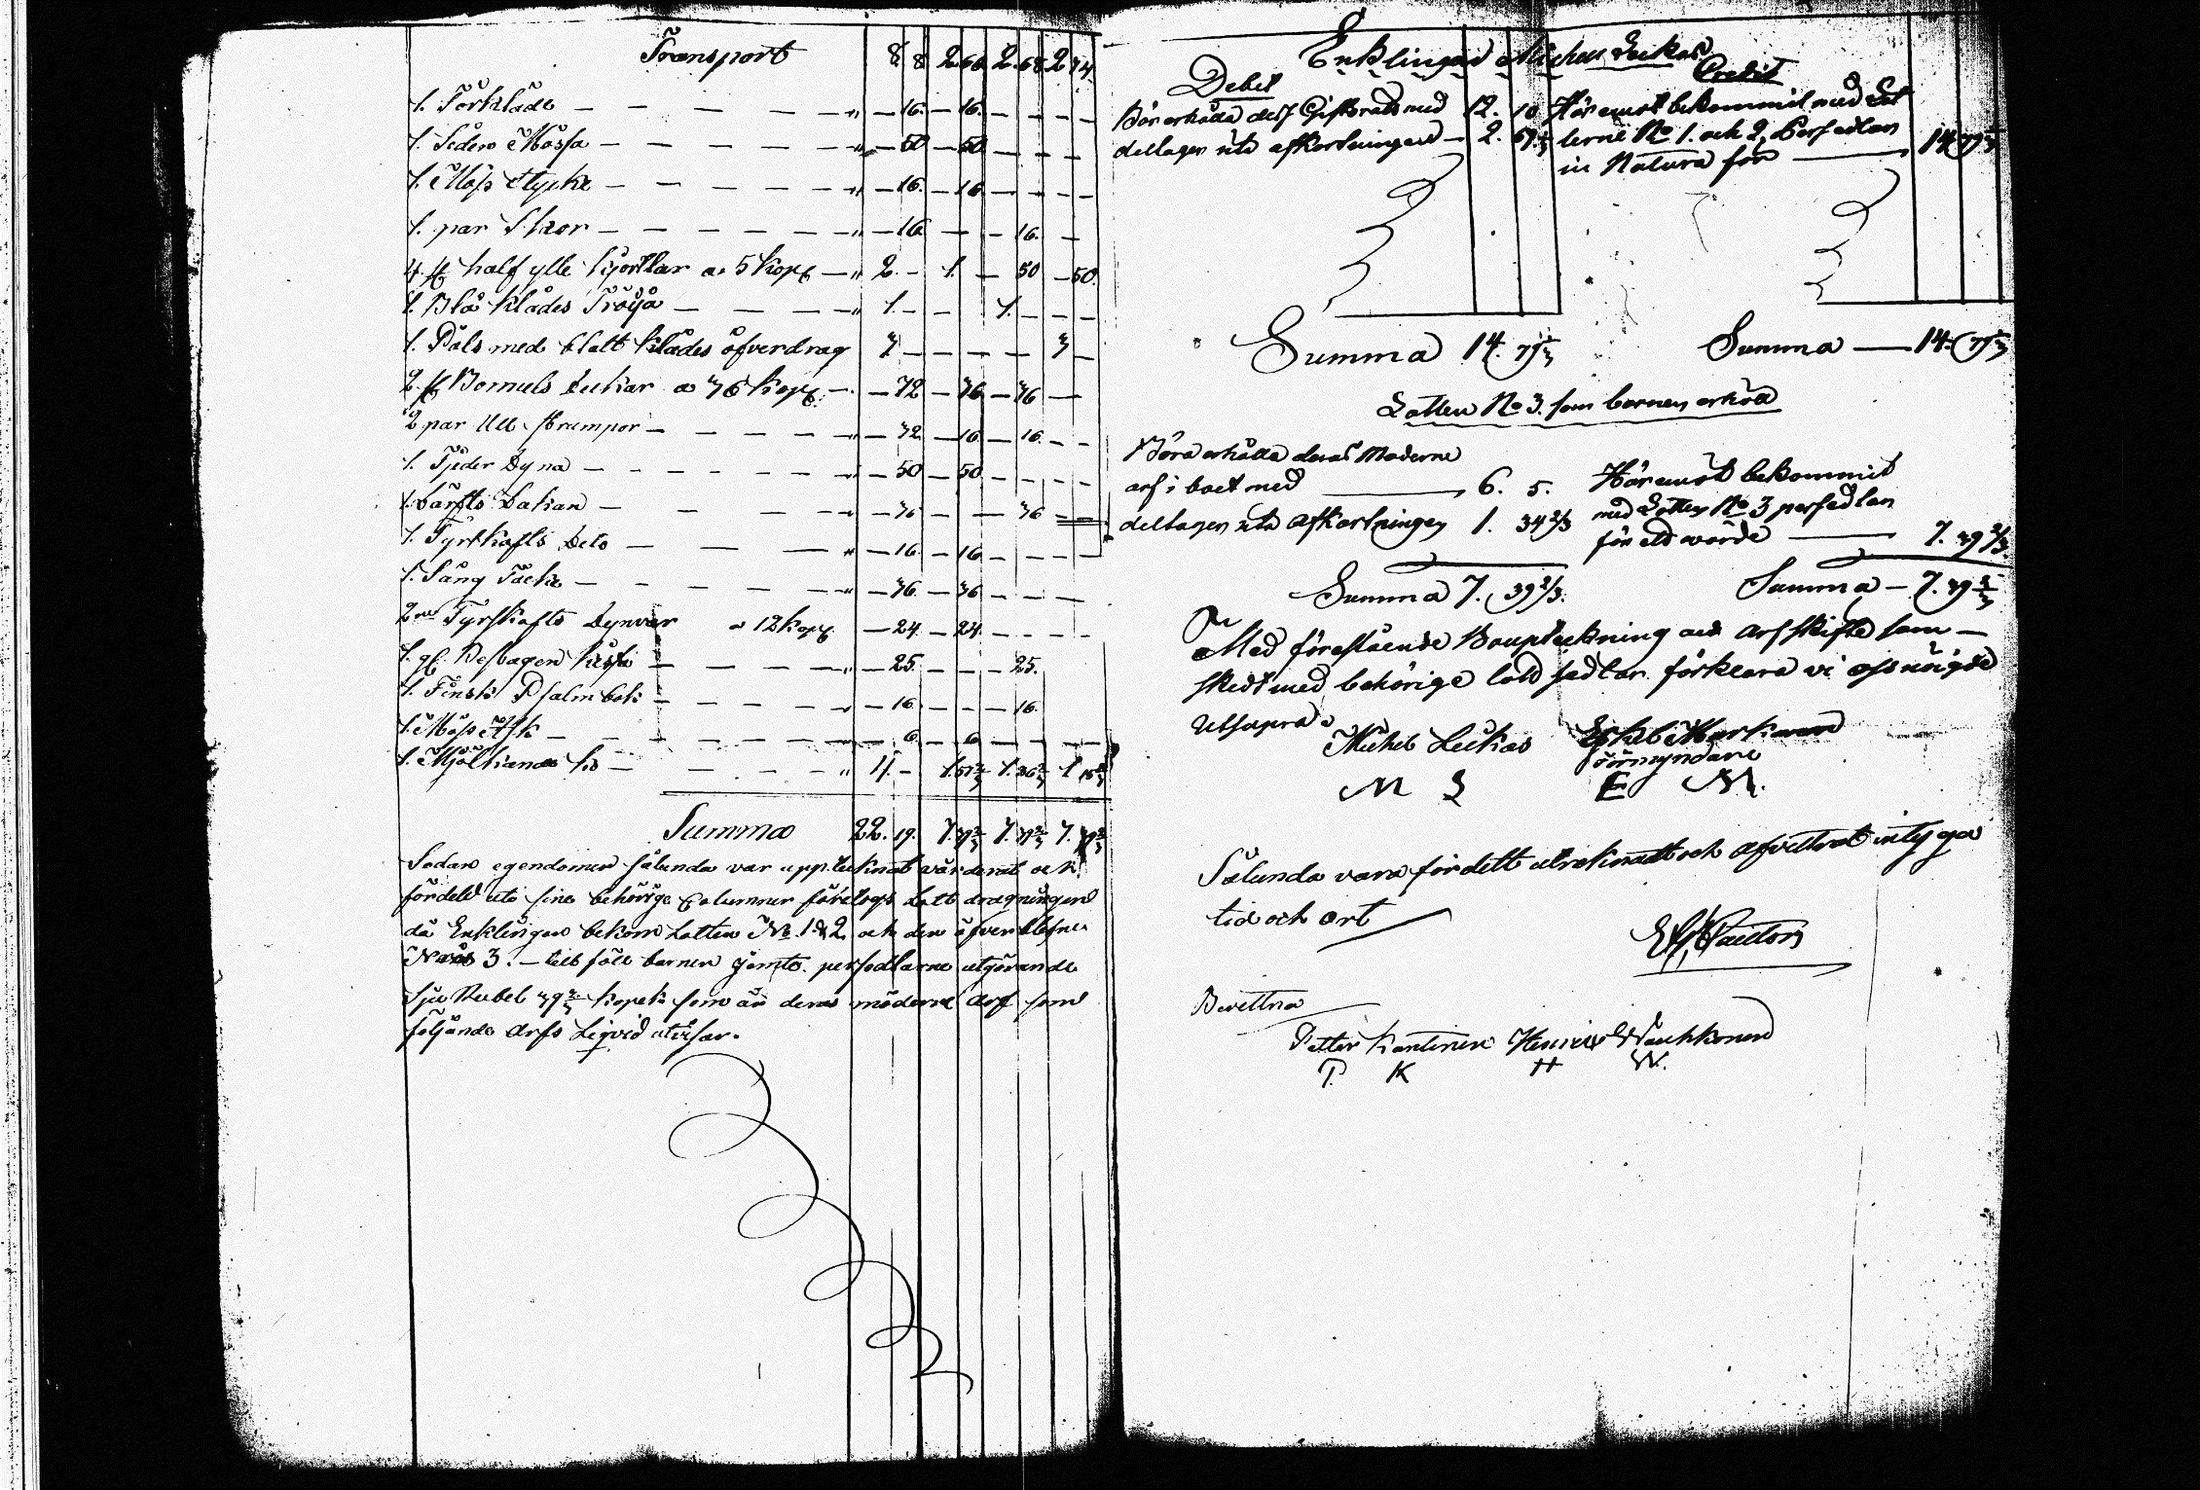 Transport 8 8 2 60 2 68 2 74
1. Förkläde — — — — — „ — 16. — 16. — — — —
1. Siden Mössa — — — — — „ — 50 — 50 — — — —
1. Möss stycke — — — — — „ — 16. — 16 — — — —
1. par Skor — — — — — „ — 16. — — 16. —
4 st half ylle kjortlar a 50 kop — „ 2. — 1. — 50 — 50.
1. Blå klädes Tröija — — — — „ 1. — — 1. — — —
1. Päls med blått klädes öfverdrag 3 — — — — 3 —
2 st Bomuls Dukar a 36 kop — — 72 — 36 — 36 —
2 par Ull strumpor — — — — — „ — 32 — 16 — 16 — —
1. Fjeder Dyna — — — — — — „ — 50 — 50 — — — —
1. Lärfts Lakan — — — — — 36 — — 36 — —
1. Fyrskafts Dito — — — „ — 16. — 16 — — — —
1. Säng Täcke — — — — — „ — 36. — 36 — — — —
2ne Fyrskafts Dynvar a 12 kop — 24 — 24 — — — —
1. gl. Beslagen kista — — — — „ — 25. — — — 25.
1. Finsk Psalmbok — — — — — „ — 16 — — — 16.
1. Möss Ask — — — — — — 6. — 6 — — — —
1. Mjölkande ko — — — — — „ 4. — 1. 57⅔ 1. 36⅔ 1 15⅔
Summa 22. 19. 7. 39⅔ 7. 39⅔ 7. 39⅔
Sedan egendomen sålunda var upptecknat värderat och
fördeld uti sine behörige Columner företogs Lott dragningen
då Enklingen bekom Lotten No 1 & 2 och den öfverblefne
3. — barnen jemte persedlarne utgörande
sju Rubel 39⅔ kopek som är deras möderne arf som
följande arfs Liqvid utvisar.
Enklingen Michel Leikas
Debet Credit
Bör erhålla dess Giftorätt med 12. 10
deltager uti afkortningen — 2. 69⅓
Häremot bekommit med Lot
terne No 1. och 2, Persedlar
in Natura för — 14. 79⅓
Summa 14. 79⅓ Summa — 14. 79⅓
Lotten No 3. som barnen erhöll
Böra erhålla deras Moderne
arf i boet med — 6. 5.
deltager uti Afkortningen 1. 34⅔
Häremot bekommit
med Lotten No 3 persedlar
för ett värde — 7. 39⅔
Summa 7. 39⅔. Summa — 7. 39⅔
Med förestående Bouptekning och arfskifte som —
skedt med behörige lått sedlar förklara vi oss nöigde
Utsupra.
Michel Leikas Eskel Markanen
förmyndare
M L E M.
Sålunda vara förrdett uträknadt och afvittrat intyga
tid och ort
Bevittna
Petter Kantinen Henric Wauhkonen
P. K H W.